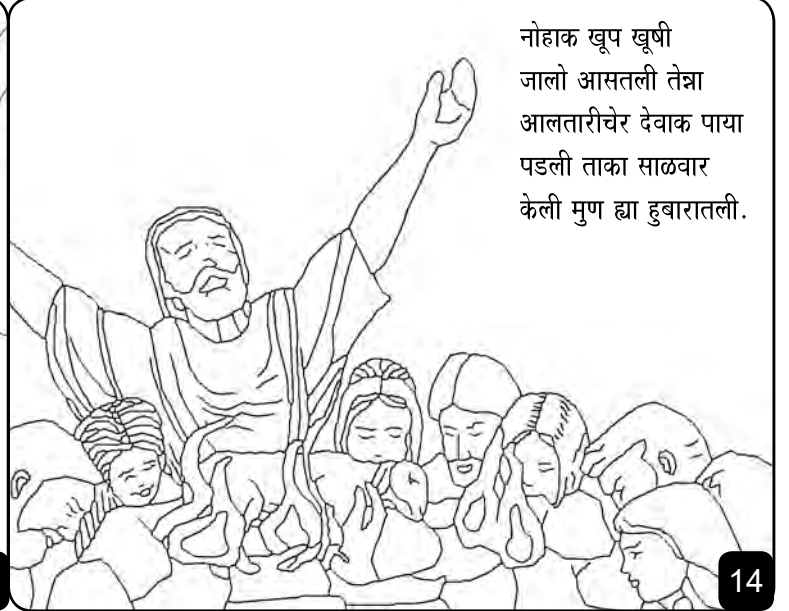 नोहाक खूप खूषी
जालो आसतली तेन्ना
आलतारीचेर देवाक पाया
पडली ताका साळवार
केली मुण ह्या हुबारातली.
14